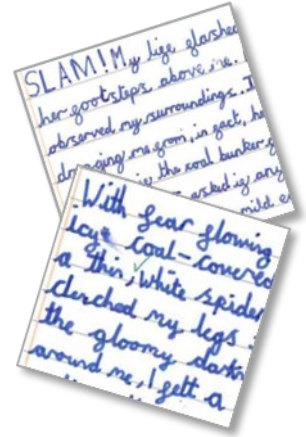 SLAM! My life flashed
her footsteps above me.
observed my surroundings. I
me from, in fact, he
is the coal bunker
asked if any
mild e
With fear flowing
icy coal-covered
a thin, white spider
clenched my legs
the gloomy dark
around me, I felt a